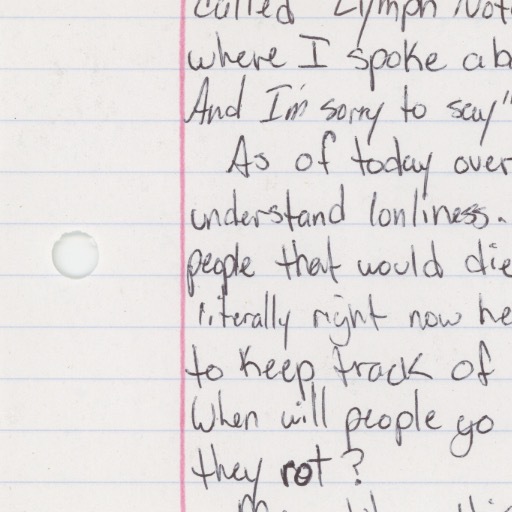 called "Lymph Not
where I spoke ab
And I'm sorry to say"
As of today over
understand lonliness.
people that would die
literally right now he
to keep track of
When will people go
they rot?